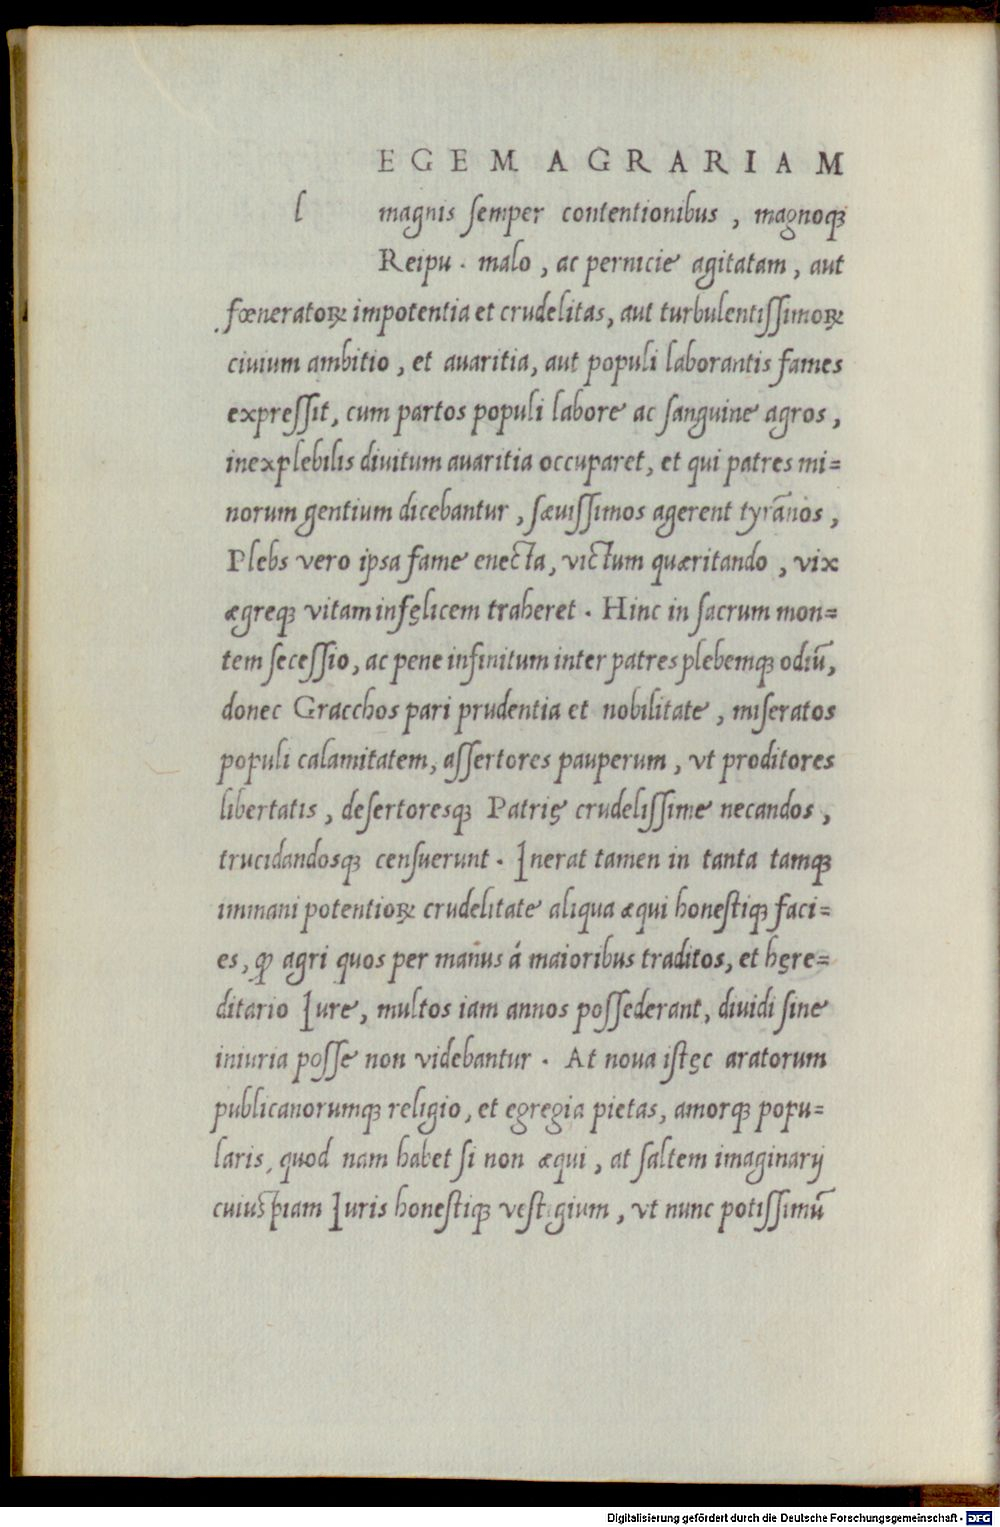 EGEM AGRARIAM
l magnis ſemper contentionibus , magnoqꝫ
Reipu · malo , ac pernicie agitatam , aut
fœneratoꝝ impotentia et crudelitas, aut turbulentiſſimoꝝ
ciuium ambitio , et auaritia, aut populi laborantis fames
expreſſit, cum partos populi labore ac ſanguine agros ,
inexplebilis diuitum auaritia occuparet, et qui patres mi=
norum gentium dicebantur , ſæuiſſimos agerent tyrãnos ,
Plebs vero ipsa fame enecta, victum quæritando , vix
ægreqꝫ vitam infęlicem traheret · Hinc in ſacrum mon=
tem ſeceſſio, ac pene infinitum inter patres plebemqꝫ odiũ,
donec Gracchos pari prudentia et nobilitate , miſeratos
populi calamitatem, aſſertores pauperum , vt proditores
libertatis , deſertoresqꝫ Patrię crudeliſſime necandos ,
trucidandosqꝫ cenſuerunt · Inerat tamen in tanta tamqꝫ
immani potentioꝝ crudelitate aliqua æqui honeſtiqꝫ faci=
es, ꝙ agri quos per manus á maioribus traditos, et hęre=
ditario Iure, multos iam annos poſſederant, diuidi ſine
iniuria poſſe non videbantur · At noua iſtęc aratorum
publicanorumqꝫ religio, et egregia pietas, amorqꝫ popu=
laris, quod nam habet ſi non æqui , at ſaltem imaginarij
cuiuspiam Iuris honeſtiqꝫ veſtigium , vt nunc potiſſimũ
Digitalisierung gefördert durch die Deutsche Forschungsgemeinschaft - DFG